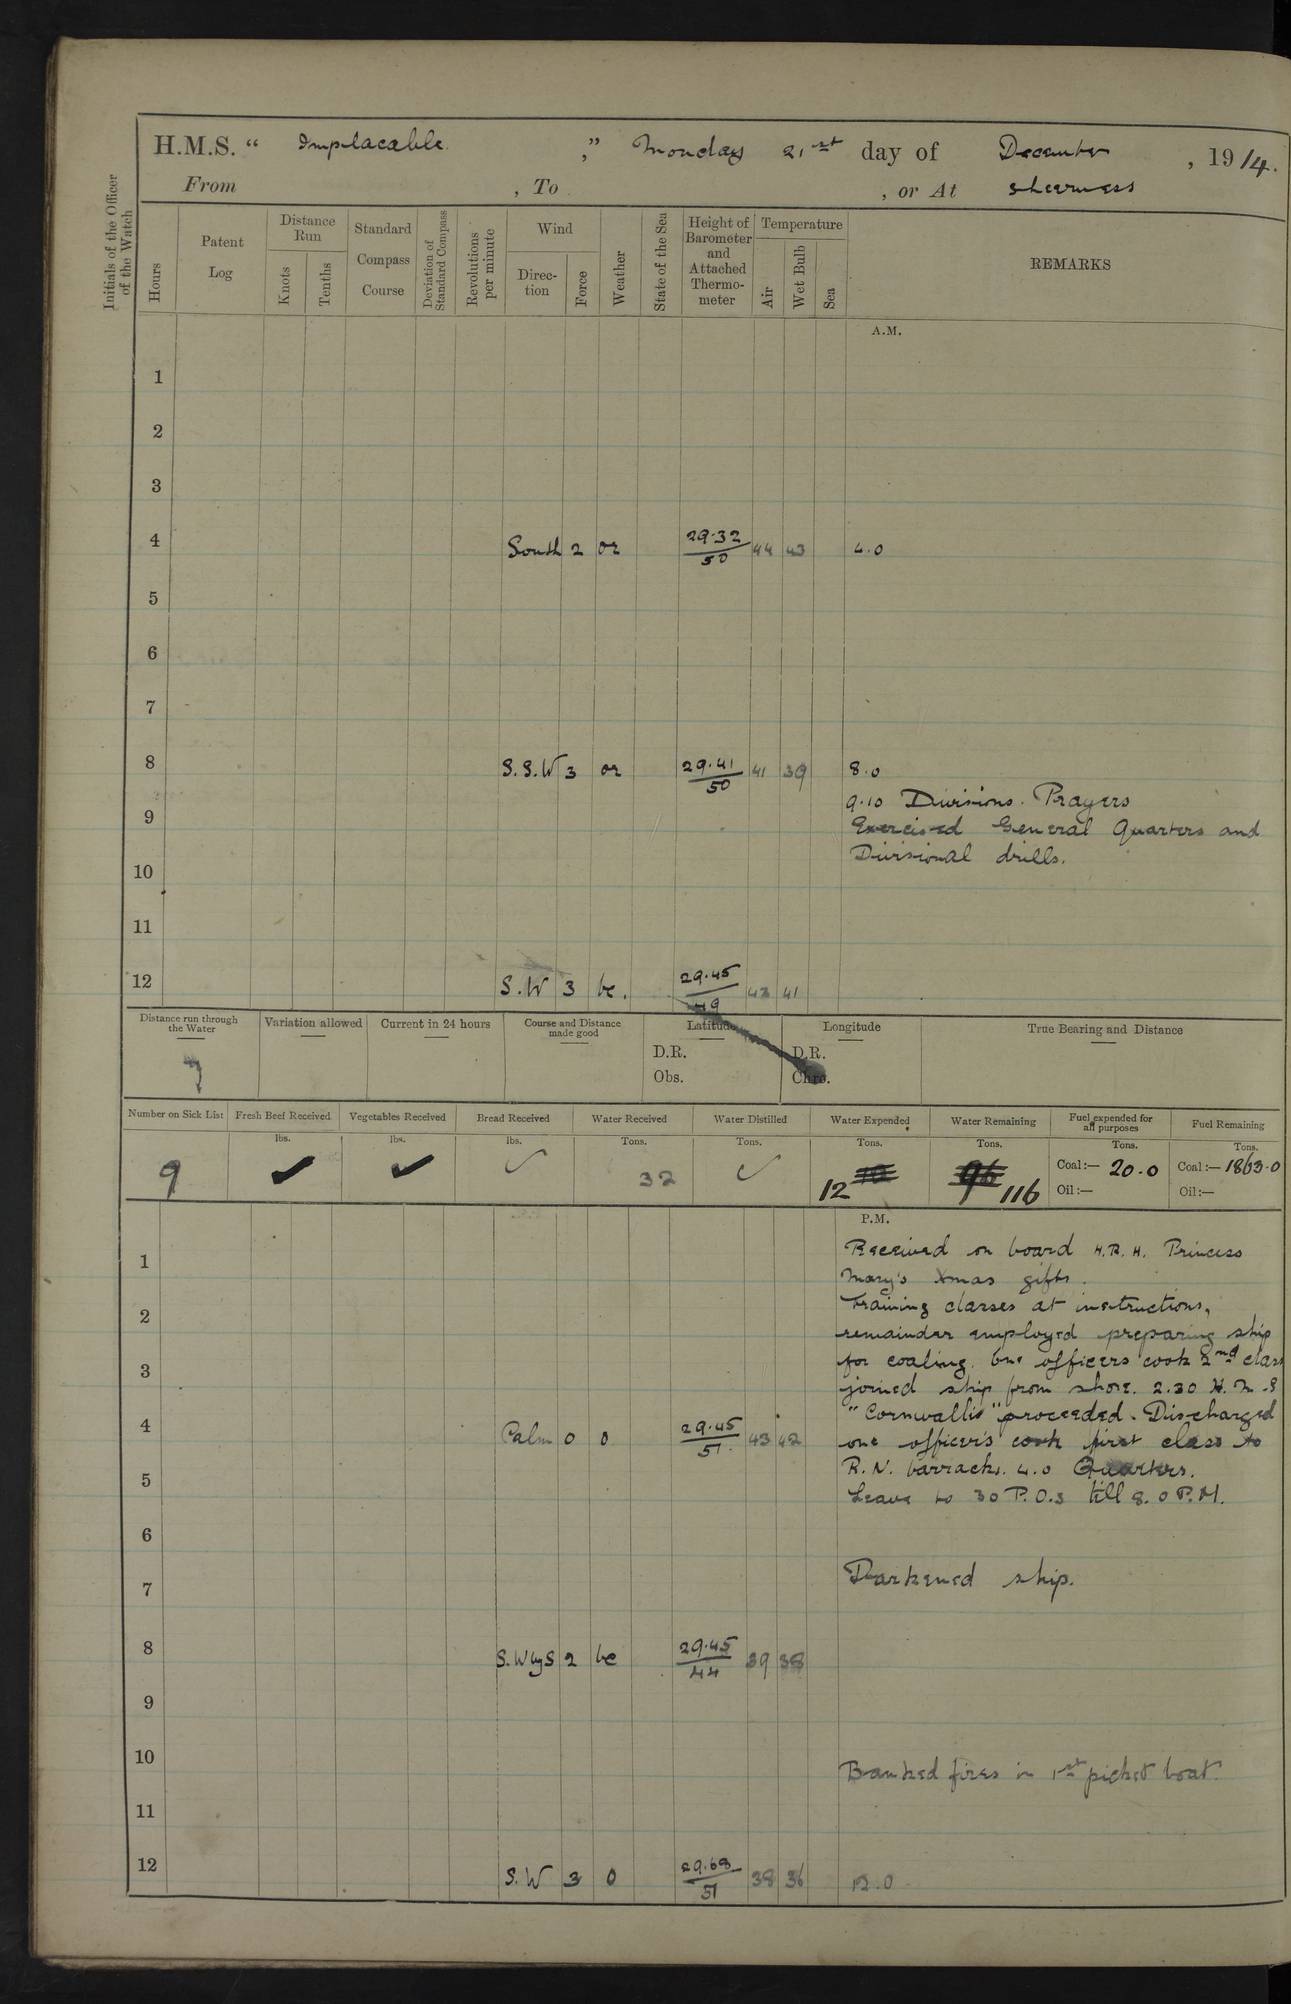 H.M.S. “ Implacable ,” Monday 21st day of December , 1914.
From , To , or At Sheerness
Initials of the Officer of the Watch
Hours
Patent Log
Distance Run
Knots
Tenths
Standard Compass Course
Deviation of Standard Compass
Revolutions per minute
Wind
Direc-tion
Force
Weather
State of the Sea
Height of Barometer and Attached Thermo-meter
Temperature
Air
Wet Bulb
Sea
REMARKS
A.M.
1
2
3
4 South 2 or 29.32/50 44 43 4.0
5
6
7
8 S.S.W 3 or 29.41/50 41 39 8.0
9.10 Divisions. Prayers
9 Exercised General Quarters and
Divisional drills.
10
11
12 S.W 3 bc. 29.45/49 43 41
Distance run through the Water
Variation allowed
Current in 24 hours
Course and Distance made good
Latitude
D.R.
Obs.
Longitude
D.R.
Chro.
True Bearing and Distance
Number on Sick List
Fresh Beef Received
Vegetables Received
Bread Received
Water Received
Water Distilled
Water Expended
Water Remaining
Fuel expended for all purposes
Fuel Remaining
lbs. lbs. lbs. Tons. Tons. Tons. Tons. Tons. Tons.
9 ✓ ✓ ✓ 32 ✓ 10 12 96 116 Coal:— 20.0 Coal:— 1863.0
Oil:— Oil:—
P.M.
Received on board H.R.H. Princess
1
Mary's Xmas gifts.
Training classes at instructions,
2
remainder employed preparing ship
for coaling. One officers cook 2nd class
3
joined ship from shore. 2.30 H.M.S
“Cornwallis” proceeded. Discharged
4 Calm 0 0 29.45/51. 43 42 one officer's cook first class to
R.N. barracks. 4.0 Quarters.
5
Leave to 30 P.O.s till 8.0 P.M.
6
Darkened ship.
7
8 S.W by S 2 bc 29.45/44 39 38
9
10 Banked fires in 1st picket boat.
11
12 S.W 3 0 29.68/51 38 36 12.0